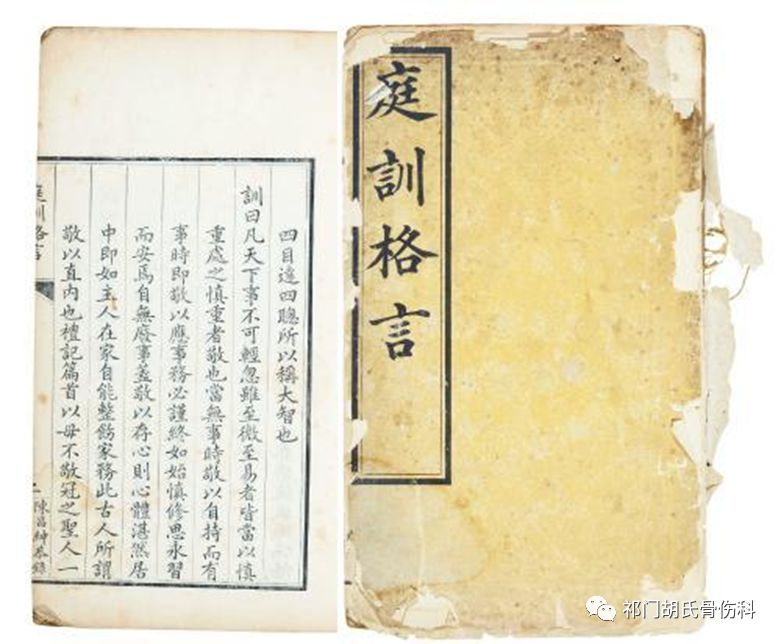 庭訓格言
四目達四聰所以稱大智也
訓曰凡天下事不可輕忽雖至微至易者皆當以慎
重處之慎重者敬也當無事時敬以自持而有
事時即敬以應事務必謹終如始慎修思永習
而安焉自無廢事蓋敬以存心則心體湛然居
中即如主人在家自能整飭家務此古人所謂
敬以直內也禮記篇首以毋不敬冠之聖人一
庭訓格言
一
陳昌紳恭錄
祁门胡氏骨伤科